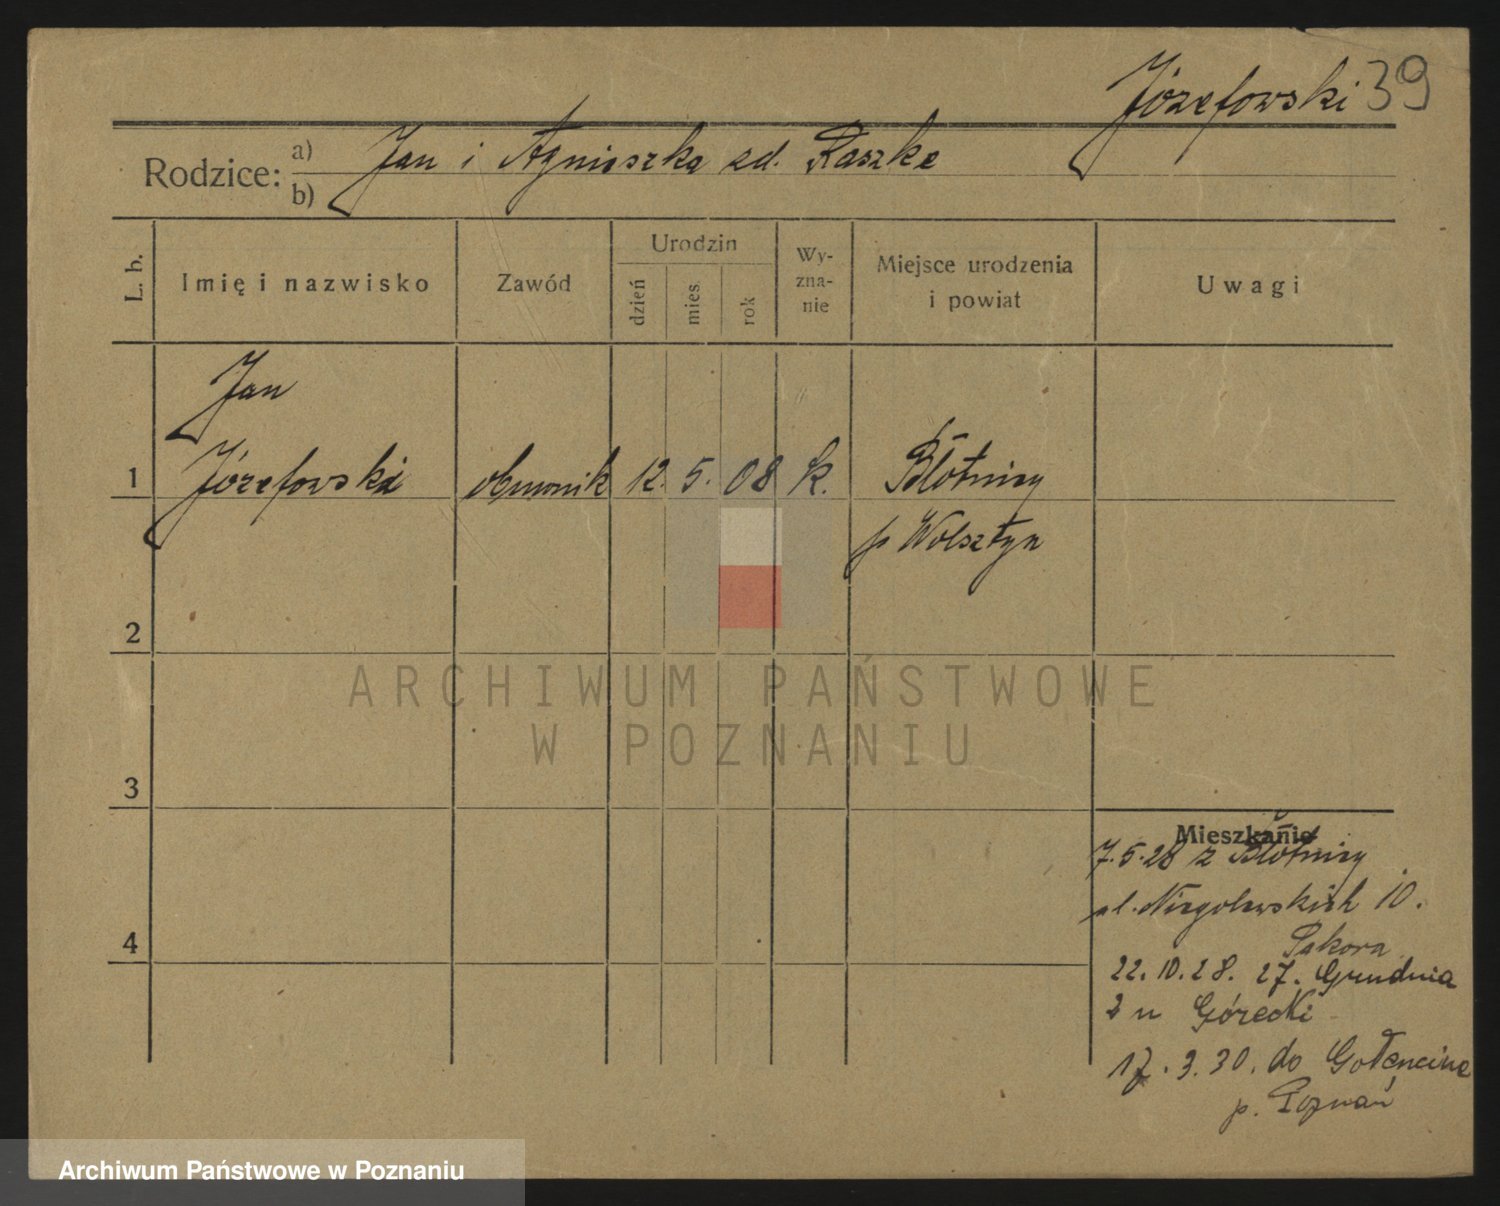 Józefowski 39
Rodzice: a) Jan i Agnieszka zd. Raszke
b)
L. b.
Imię i nazwisko
Zawód
Urodzin
dzień
mies.
rok
Wy-
zna-
nie
Miejsce urodzenia
i powiat
Uwagi
Jan
1 Józefowski 12. 5. 08 k. Błotnicy
p Wolsztyn
2
3
4
Mieszkanie
7.5.28 z Błotnicy
ul. Niegolewskich 10.
22.10.28. 27. Grudnia
2 u Górecki
17.3.30. do Gołencine
p. Poznań
ARCHIWUM PAŃSTWOWE
W POZNANIU
Archiwum Państwowe w Poznaniu